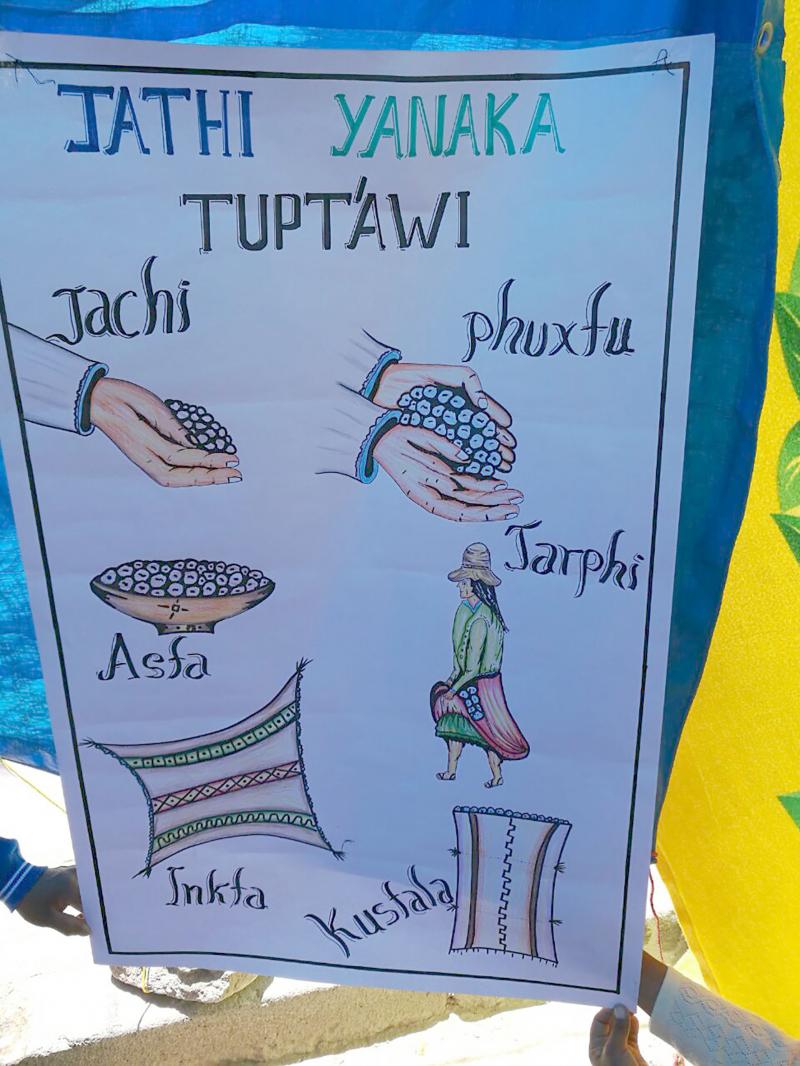 JATHI YANAKA
TUPT'AWI
Jachi
phuxtu
Jarphi
Asta
Inkta
Kustala